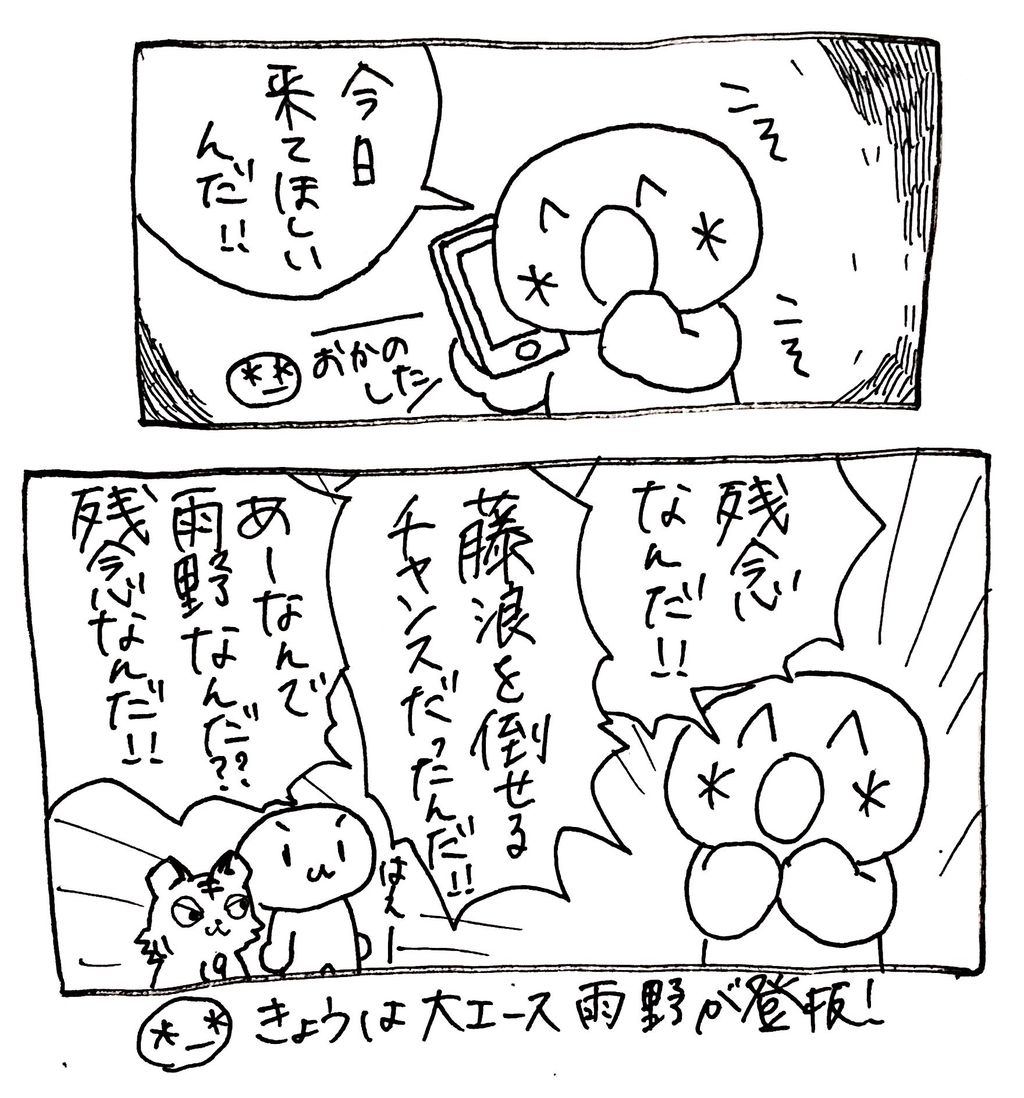 今日
来てほしい
んだ!!
こそ
こそ
おかの
した!
残念
なんだ!!
藤浪を倒せる
チャンスだったんだ!!
あーなんで
雨野なんだ??
残念なんだ!!
はぇー
19
きょうは大エース雨野が登板!